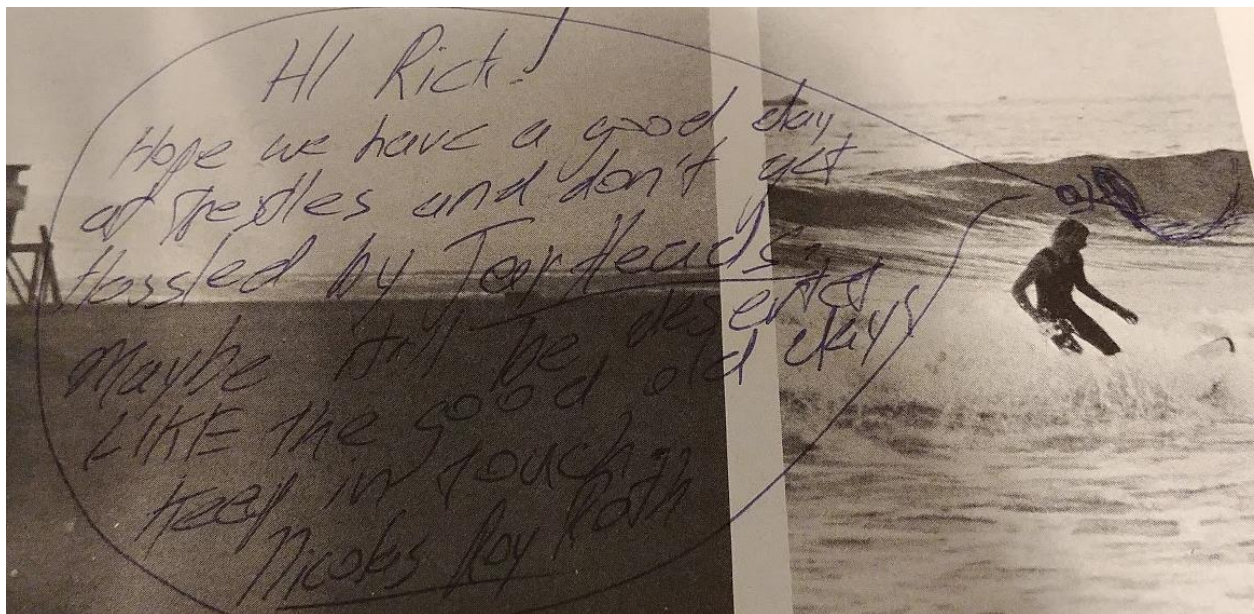 HI Rich!
Hope we have a good day
at and don't get
Hassled by
Maybe it'll be deserted
LIKE the good old days
Keep in touch
Nicolas Roy Roth